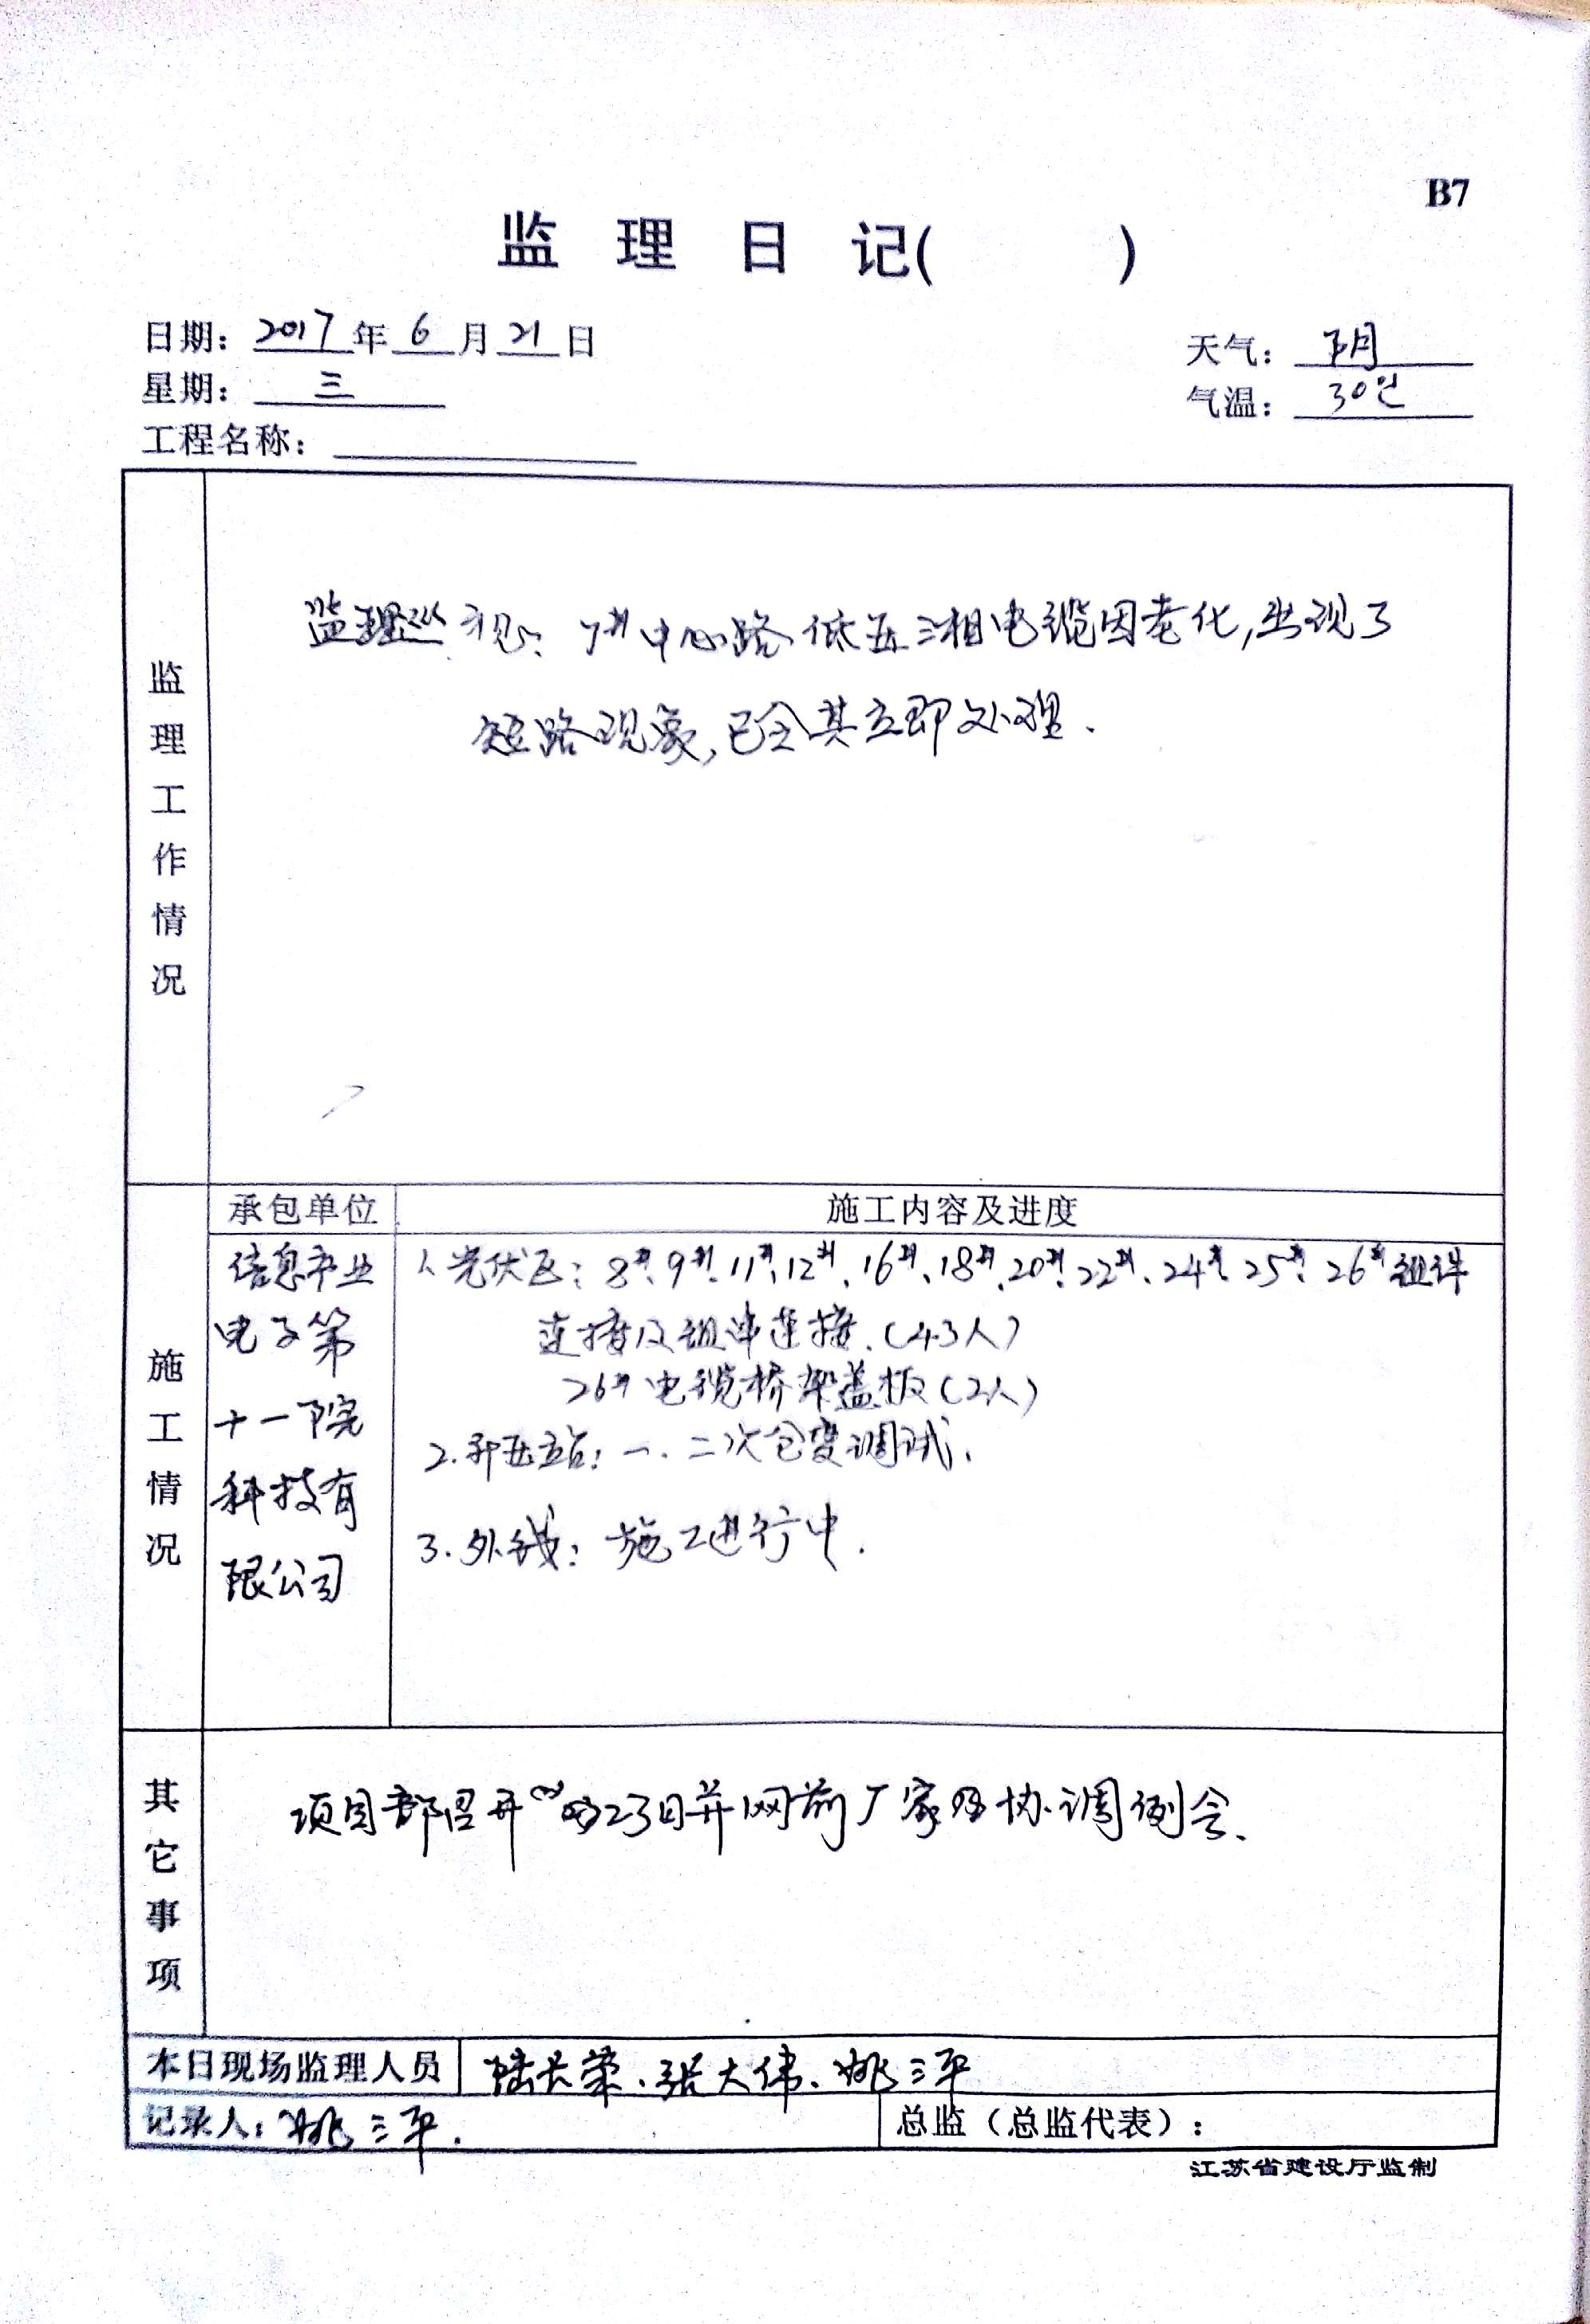 B7
监 理 日 记( )
日期: 2017 年 6 月 21 日
天气: 阴
星期: 三
气温: 30℃
工程名称:
监理工作情况
监理巡视: 7# 中心路低压三相电缆因老化,出现了
短路现象,已令其立即处理.
施工情况
承包单位
施工内容及进度
信息产业
电子第
十一院
科技有
限公司
1.光伏区: 8#、9#、11#、12#、16#、18#、20#、22#、24#、25#、26#组件
连接及组串连接.(43人)
26#电缆桥架盖板(2人)
2.升压站: 一.二次仓变调试.
3.外线: 施工进行中.
其它事项
项目部召开 23日并网前厂家 协调例会.
本日现场监理人员 陆长荣、张大伟、姚三平
记录人: 姚三平.
总监(总监代表):
江苏省建设厅监制